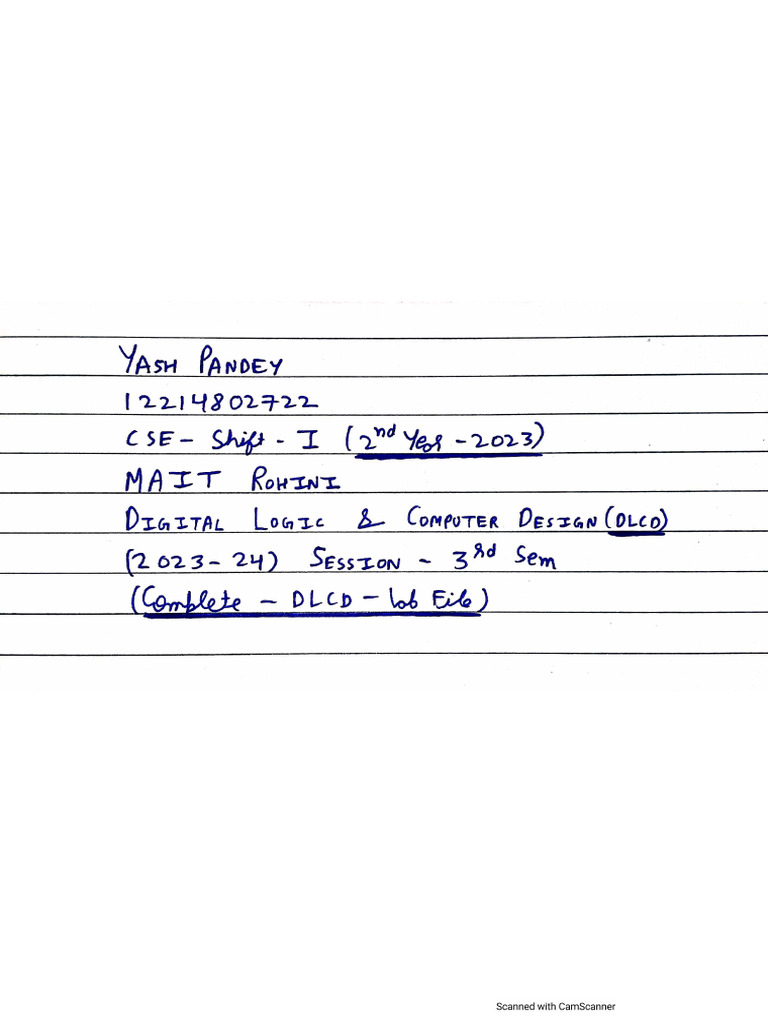 YASH PANDEY
12214802722
CSE - Shift - I (2nd Year - 2023)
MAIT ROHINI
DIGITAL LOGIC & COMPUTER DESIGN (DLCD)
(2023-24) SESSION - 3rd Sem
(Complete - DLCD - lab File)
Scanned with CamScanner